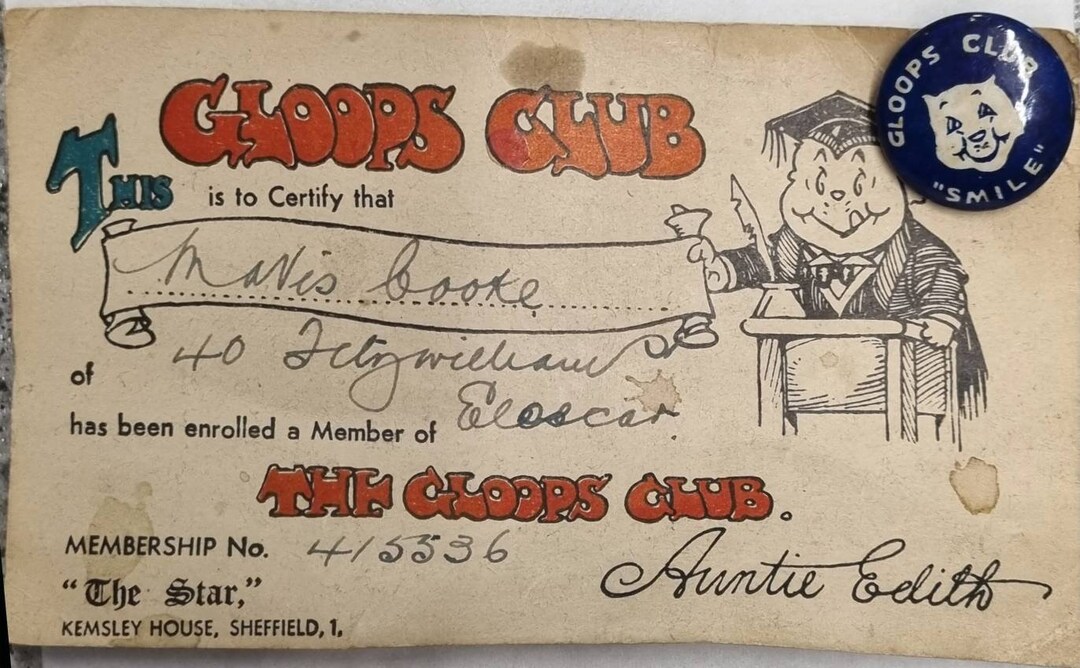 GLOOPS CLUB
GLOOPS CLUB
"SMILE"
THIS is to Certify that
Mavis Cooke
of 40 Fitzwilliam St
Elsecar.
has been enrolled a Member of
THE GLOOPS CLUB.
MEMBERSHIP No. 415536
"The Star,"
Auntie Edith
KEMSLEY HOUSE, SHEFFIELD, 1,